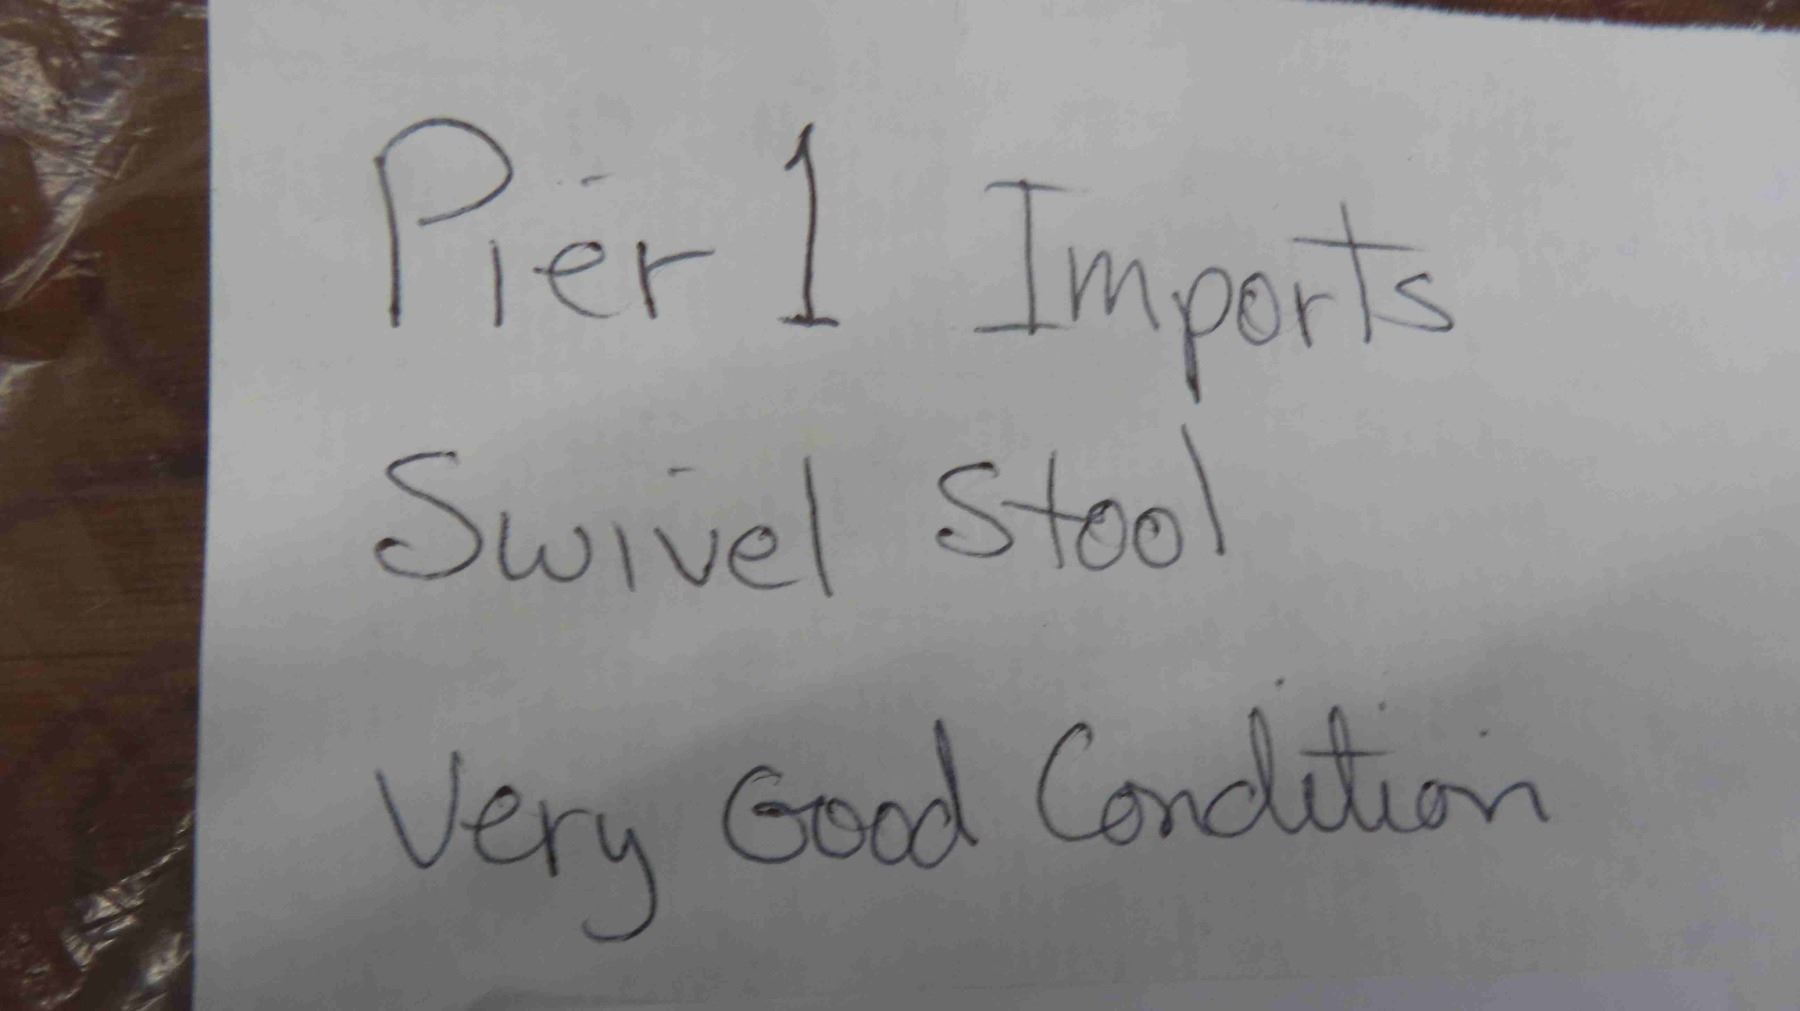 Pier 1 Imports
Swivel Stool
Very Good Condition